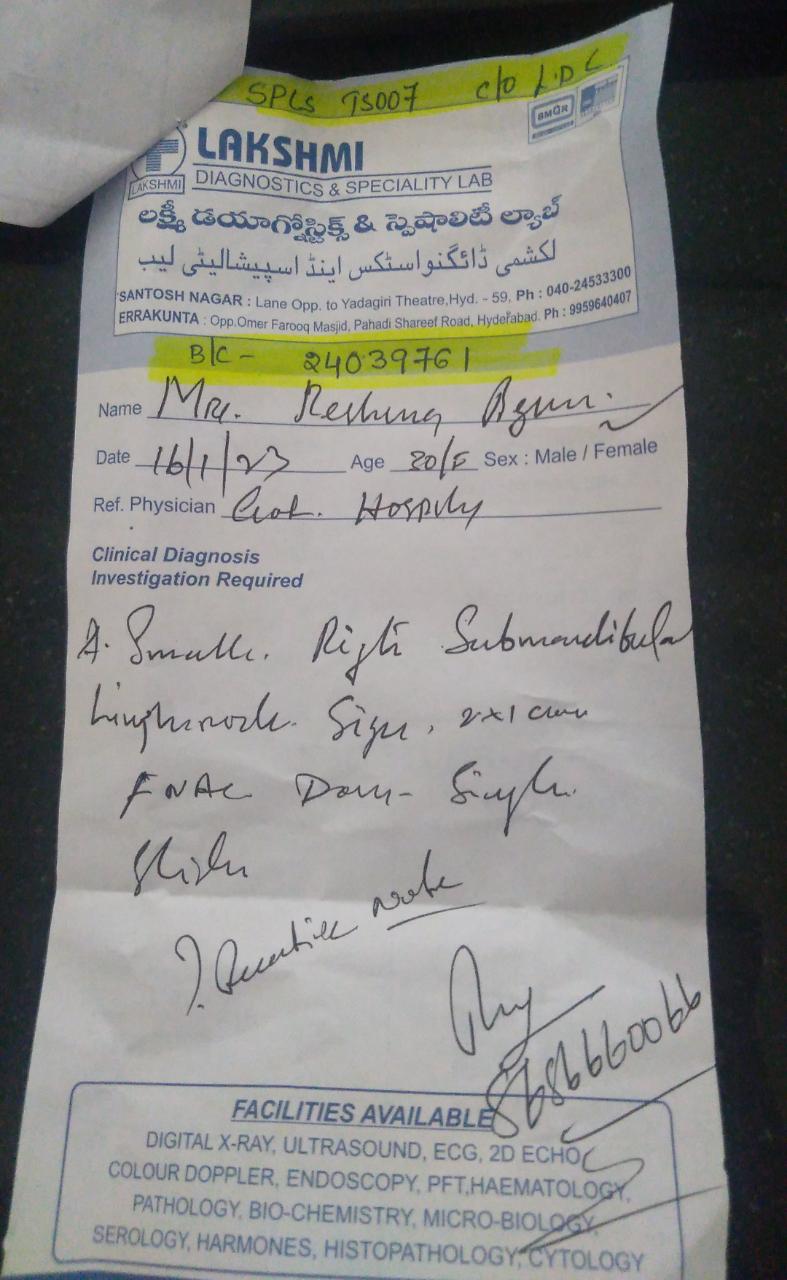 SPLs TS007 C/O L.D.C
BMQR
LAKSHMI
LAKSHMI
DIAGNOSTICS & SPECIALITY LAB
లక్ష్మీ డయాగ్నోస్టిక్స్ & స్పెషాలిటీ ల్యాబ్
لکشمی ڈائگنواسٹکس اینڈ اسپیشالیٹی لیب
SANTOSH NAGAR : Lane Opp. to Yadagiri Theatre,Hyd. - 59, Ph : 040-24533300
ERRAKUNTA : Opp.Omer Farooq Masjid, Pahadi Shareef Road, Hyderabad. Ph : 9959640407
B/C - 24039761
Name Mrs.
Date 16/1/23 Age 20/F Sex : Male / Female
Ref. Physician
Clinical Diagnosis
Investigation Required
A. Small. Right Submandibular
Lymphnode. Size, 2x1 cm
FNAC Done - Single
Slide
? Reactive node
8686660066
FACILITIES AVAILABLE
DIGITAL X-RAY, ULTRASOUND, ECG, 2D ECHO
COLOUR DOPPLER, ENDOSCOPY, PFT,HAEMATOLOGY,
PATHOLOGY, BIO-CHEMISTRY, MICRO-BIOLOGY,
SEROLOGY, HARMONES, HISTOPATHOLOGY, CYTOLOGY